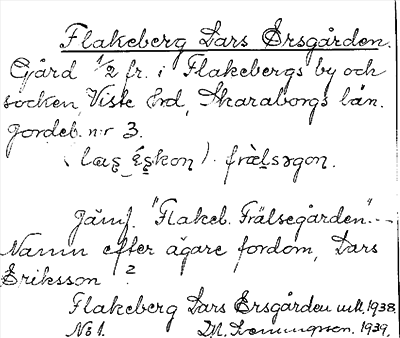 Flakeberg Lars Ersgården.
Gård 1/2 fr. i Flakebergs by och
socken, Viste hrd, Skaraborgs län.
Jordeb. nr 3.
(las̥ e̥s̥kon). frὰl̥səgon.
Jämf. "Flakeb. Frälsegården".-
Namn efter ägare fordom, Lars
Eriksson ?
Flakeberg Lars Ersgården uek. 1938.
No 1. 1939.